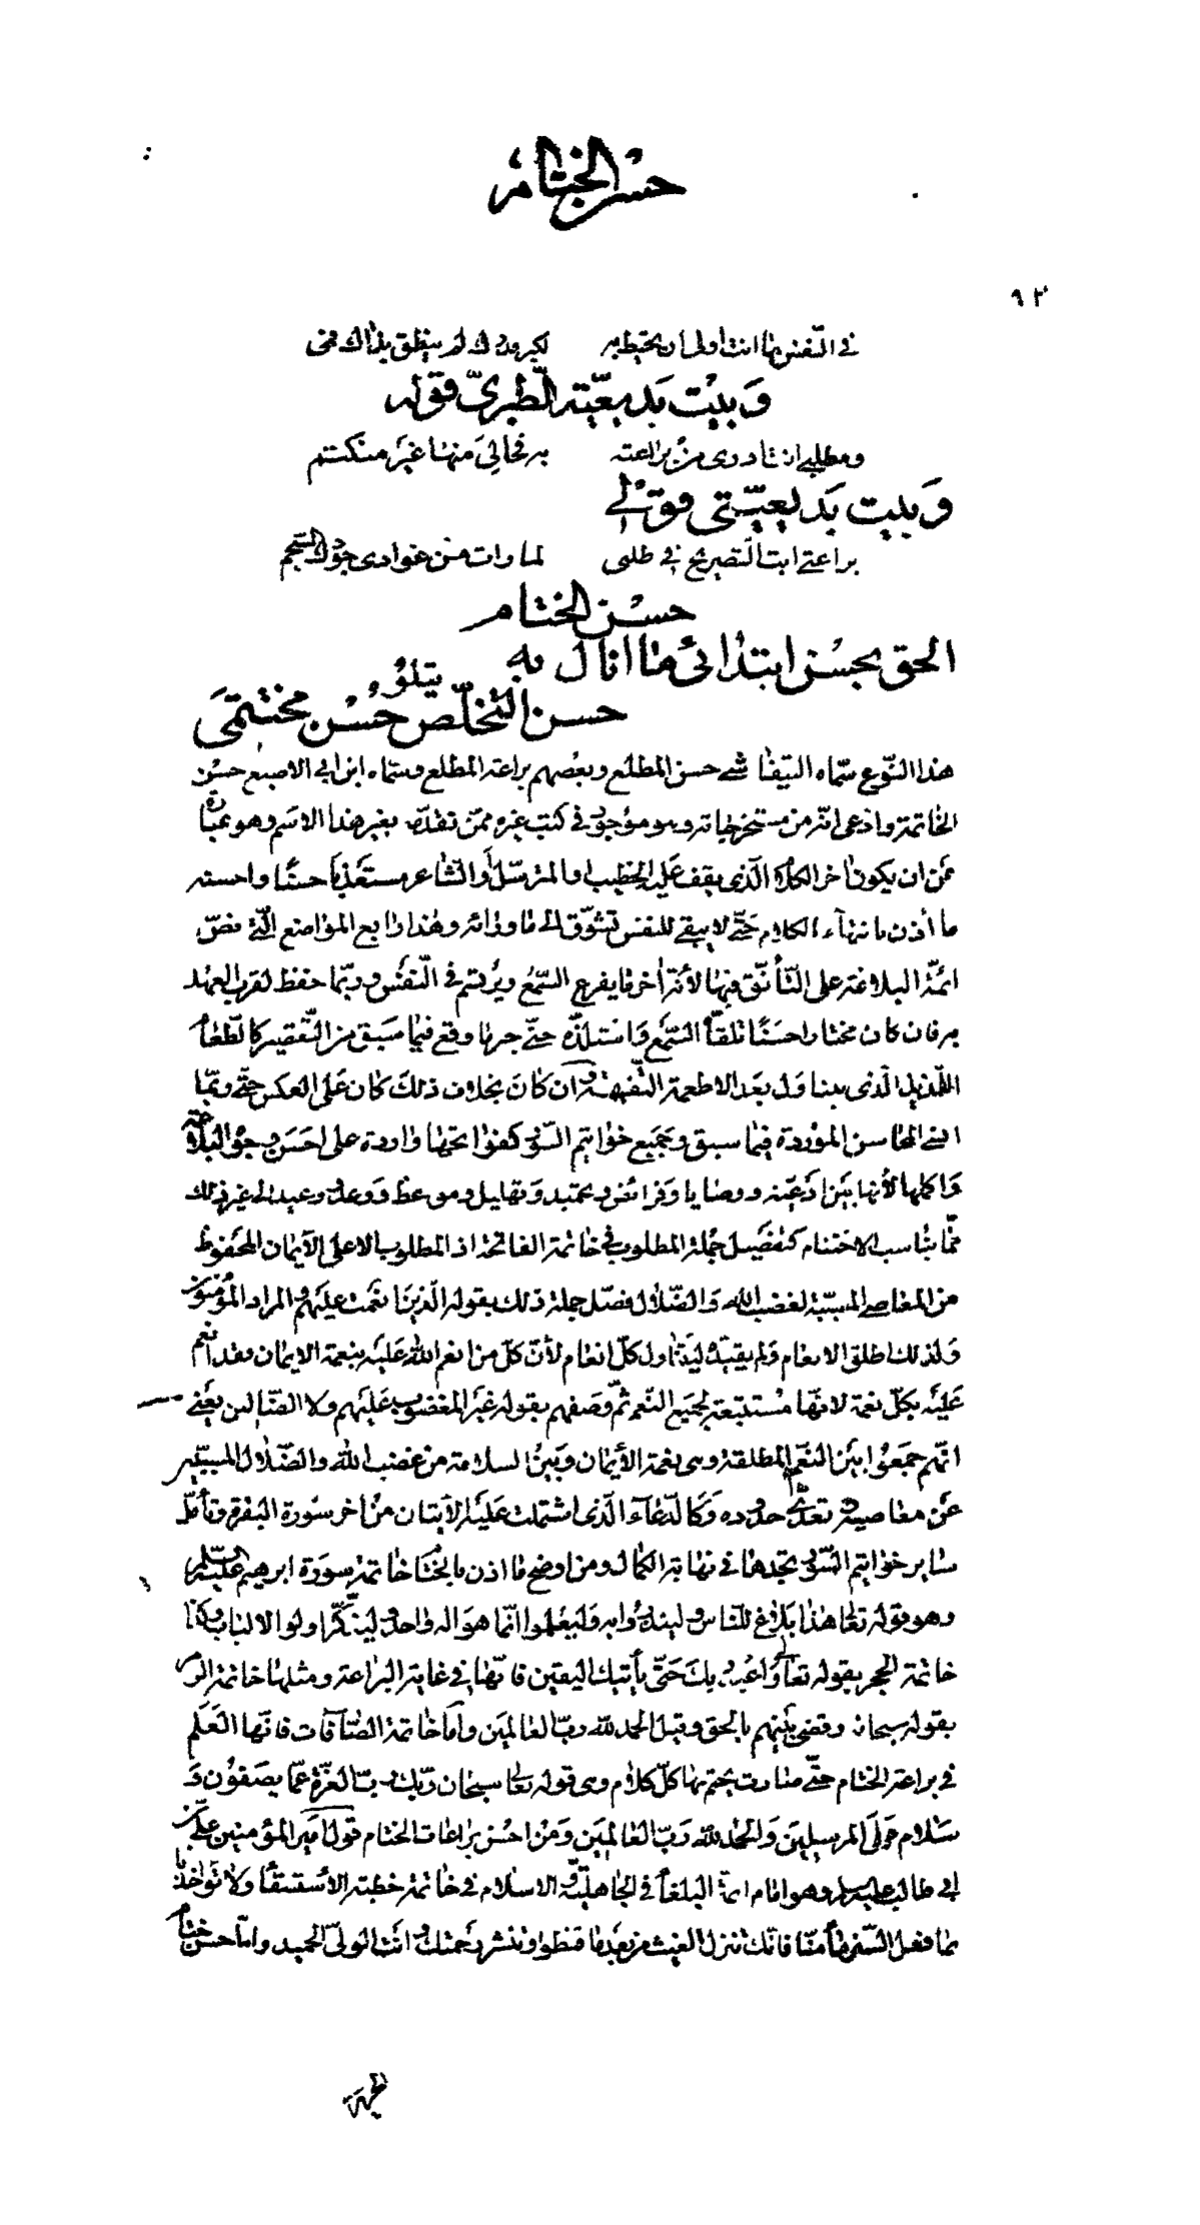 حسن الختام
٩٣
في النفس ما انت اولى ان تحيط به لكن ودك لم ينطق بذاك فمي
وبيت بديعيته الطبري قوله
ومطلبي ان تادرى من براعته به فحالي منها غير منكتم
وبيت بديعيتي قولي
براعتي ابت التصريح في طلبي لما رات من غوادي جودك السجم
حسن الختام
الحق بحسن ابتدائي ما انال به
يتلوه
حسن التخلص حسن مختتمي
هذا النوع سماه التيفاشي حسن المطلع وبعضهم براعة المطلع وسماه ابن ابي الاصبع حسن
الخاتمة وادعى انه من مستخرجاته وهو موجود في كتب غيره ممن تقدمه بغير هذا الاسم وهو عبارة
عن ان يكون اخر الكلام الذي يقف عليه الخطيب او المترسل او الشاعر مستعذبا حسنا واحسنه
ما اذن بانتهاء الكلام حتى لا يبقى للنفس تشوق الى ما وراءه وهذا رابع المواضع التي نص
ائمة البلاغة على التأنق فيها لأنه اخر ما يقرع السمع ويرتسم في النفس وربما حفظ لقرب العهد
به فان كان مختارا حسنا تلقاه السمع واستلذه حتى جبر ما وقع فيما سبق من التقصير كالطعام
اللذيذ الذي يتناول بعد الاطعمة التفهة وان كان بخلاف ذلك كان على العكس حتى ربما
انسى المحاسن الموردة فيما سبق وجميع خواتم السور كفواتحها واردة على احسن وجوه البلاغة
واكملها لأنها بين ادعية ووصايا وفرائض وتحميد وتهليل ومواعظ ووعد ووعيد الى غير ذلك
مما يناسب الاختتام كتفصيل جملة المطلوب في خاتمة الفاتحة اذ المطلوب الاعلى الايمان المحفوظ
من المعاصي المسببة لغضب الله والضلال ففصل جملة ذلك بقوله الذين انعمت عليهم والمراد المؤمنون
ولذلك اطلق الانعام ولم يقيده ليتناول كل انعام لأن كل من انعم الله عليه بنعمة الايمان فقد انعم
عليه بكل نعمة لانها مستتبعة لجميع النعم ثم وصفهم بقوله غير المغضوب عليهم ولا الضالين يعني
انهم جمعوا بين النعم المطلقة وهي نعمة الأيمان وبين السلامة من غضب الله والضلال المسببين
عن معاصيه وتعدي حدوده وكالدعاء الذي اشتملت عليه الآيتان من اخر سورة البقرة وتأمل
سائر خواتم السور تجدها في نهاية الكمال ومن اوضح ما اذن بالختام خاتمة سورة ابرهيم عليه السلام
وهو قوله تعالى هذا بلاغ للناس ولينذروا به وليعلموا انما هو اله واحد وليذكر اولوا الالباب وكذا
خاتمة الحجر بقوله تعالى واعبد ربك حتى يأتيك اليقين فانها في غاية البراعة ومثلها خاتمة الزمر
بقوله سبحانه وقضى بينهم بالحق وقيل الحمد لله رب العالمين واما خاتمة الصافات فانها العلم
في براعة الختام حتى صارت يختم بها كل كلام وهي قوله تعالى سبحان ربك رب العزة عما يصفون و
سلام على المرسلين والحمد لله رب العالمين ومن احسن براعات الختام قول امير المؤمنين علي بن
ابي طالب عليه السلام وهو امام ائمة البلغاء في الجاهلية والاسلام في خاتمة خطبة الاستسقاء ولا تؤاخذنا
بما فعل السفهاء منا فانك تنزل الغيث من بعد ما قنطوا وتنشر رحمتك وانت الولي الحميد واما حسن ختام